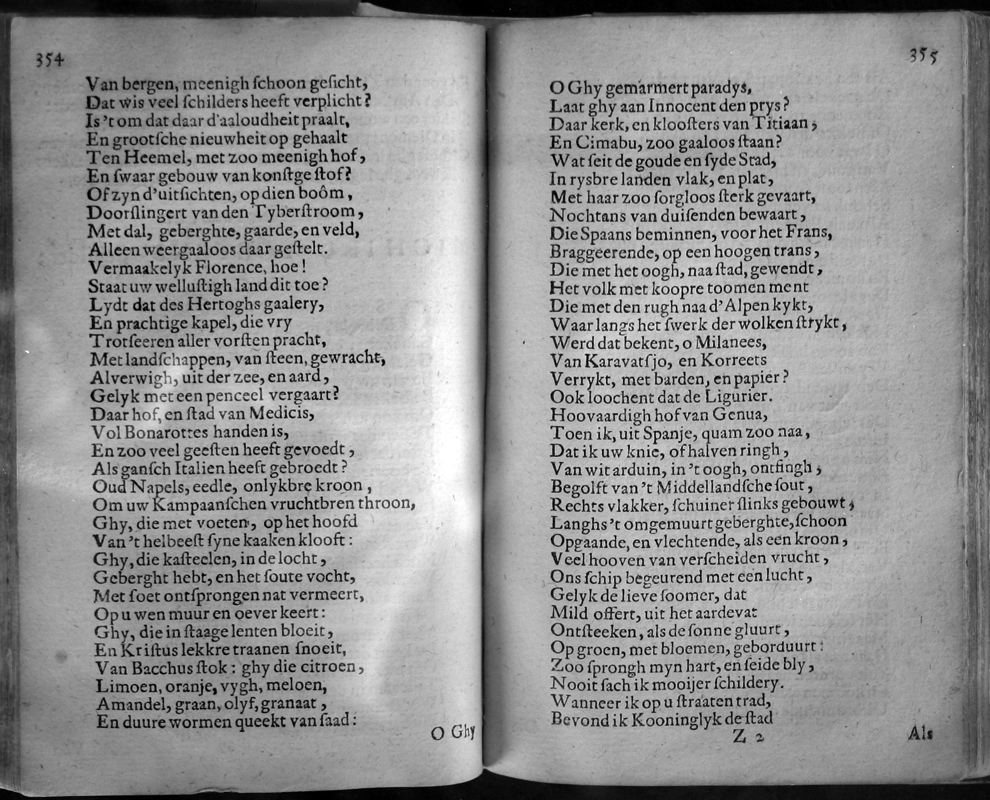 354
Van bergen, meenigh ſchoon geſicht,
Dat wis veel ſchilders heeft verplicht?
Is 't om dat daar d'aaloudheit praalt,
En grootſche nieuwheit op gehaalt
Ten Heemel, met zoo meenigh hof,
En ſwaar gebouw van konſtge ſtof?
Of zyn d'uitſichten, op dien boôm,
Doorſlingert van den Tyberſtroom,
Met dal, geberghte, gaarde, en veld,
Alleen weergaaloos daar geſtelt.
Vermaakelyk Florence, hoe!
Staat uw welluſtigh land dit toe?
Lydt dat des Hertoghs gaalery,
En prachtige kapel, die vry
Trotſeeren aller vorſten pracht,
Met landſchappen, van ſteen, gewracht,
Alverwigh, uit der zee, en aard,
Gelyk met een penceel vergaart?
Daar hof, en ſtad van Medicis,
Vol Bonarottes handen is,
En zoo veel geeſten heeft gevoedt,
Als ganſch Italien heeft gebroedt?
Oud Napels, eedle, onlykbre kroon,
Om uw Kampaanſchen vruchtbren throon,
Ghy, die met voeten, op het hoofd
Van 't helbeeſt ſyne kaaken klooft:
Ghy, die kaſteelen, in de locht,
Geberght hebt, en het ſoute vocht,
Met ſoet ontſprongen nat vermeert,
Op u wen muur en oever keert:
Ghy, die in ſtaage lenten bloeit,
En Kriſtus lekkre traanen ſnoeit,
Van Bacchus ſtok: ghy die citroen,
Limoen, oranje, vygh, meloen,
Amandel, graan, olyf, granaat,
En duure wormen queekt van ſaad:
O Ghy
355
O Ghy gemarmert paradys,
Laat ghy aan Innocent den prys?
Daar kerk, en klooſters van Titiaan;
En Cimabu, zoo gaaloos ſtaan?
Wat ſeit de goude en ſyde Stad,
In rysbre landen vlak, en plat,
Met haar zoo ſorgloos ſterk gevaart,
Nochtans van duiſenden bewaart,
Die Spaans beminnen, voor het Frans,
Braggeerende, op een hoogen trans,
Die met het oogh, naa ſtad, gewendt,
Het volk met koopre toomen ment
Die met den rugh naa d'Alpen kykt,
Waar langs het ſwerk der wolken ſtrykt,
Werd dat bekent, o Milanees,
Van Karavatſjo, en Korreets
Verrykt, met barden, en papier?
Ook loochent dat de Ligurier.
Hoovaardigh hof van Genua,
Toen ik, uit Spanje, quam zoo naa,
Dat ik uw knie, of halven ringh,
Van wit arduin, in 't oogh, ontfingh;
Begolft van 't Middellandſche ſout,
Rechts vlakker, ſchuiner ſlinks gebouwt;
Langhs 't omgemuurt geberghte, ſchoon
Opgaande, en vlechtende, als een kroon,
Veel hooven van verſcheiden vrucht,
Ons ſchip begeurend met een lucht,
Gelyk de lieve ſoomer, dat
Mild offert, uit het aardevat
Ontſteeken, als de ſonne gluurt,
Op groen, met bloemen, geborduurt:
Zoo ſprongh myn hart, en ſeide bly,
Nooit ſach ik mooijer ſchildery.
Wanneer ik op u ſtraaten trad,
Bevond ik Kooninglyk de ſtad
Z 2
Als